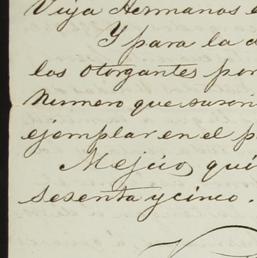 Viuja Hermanos
Y para la
los otorgantes por
Numero que suscri
ejemplar en el p
Mejico, qui
sesenta y cinco.